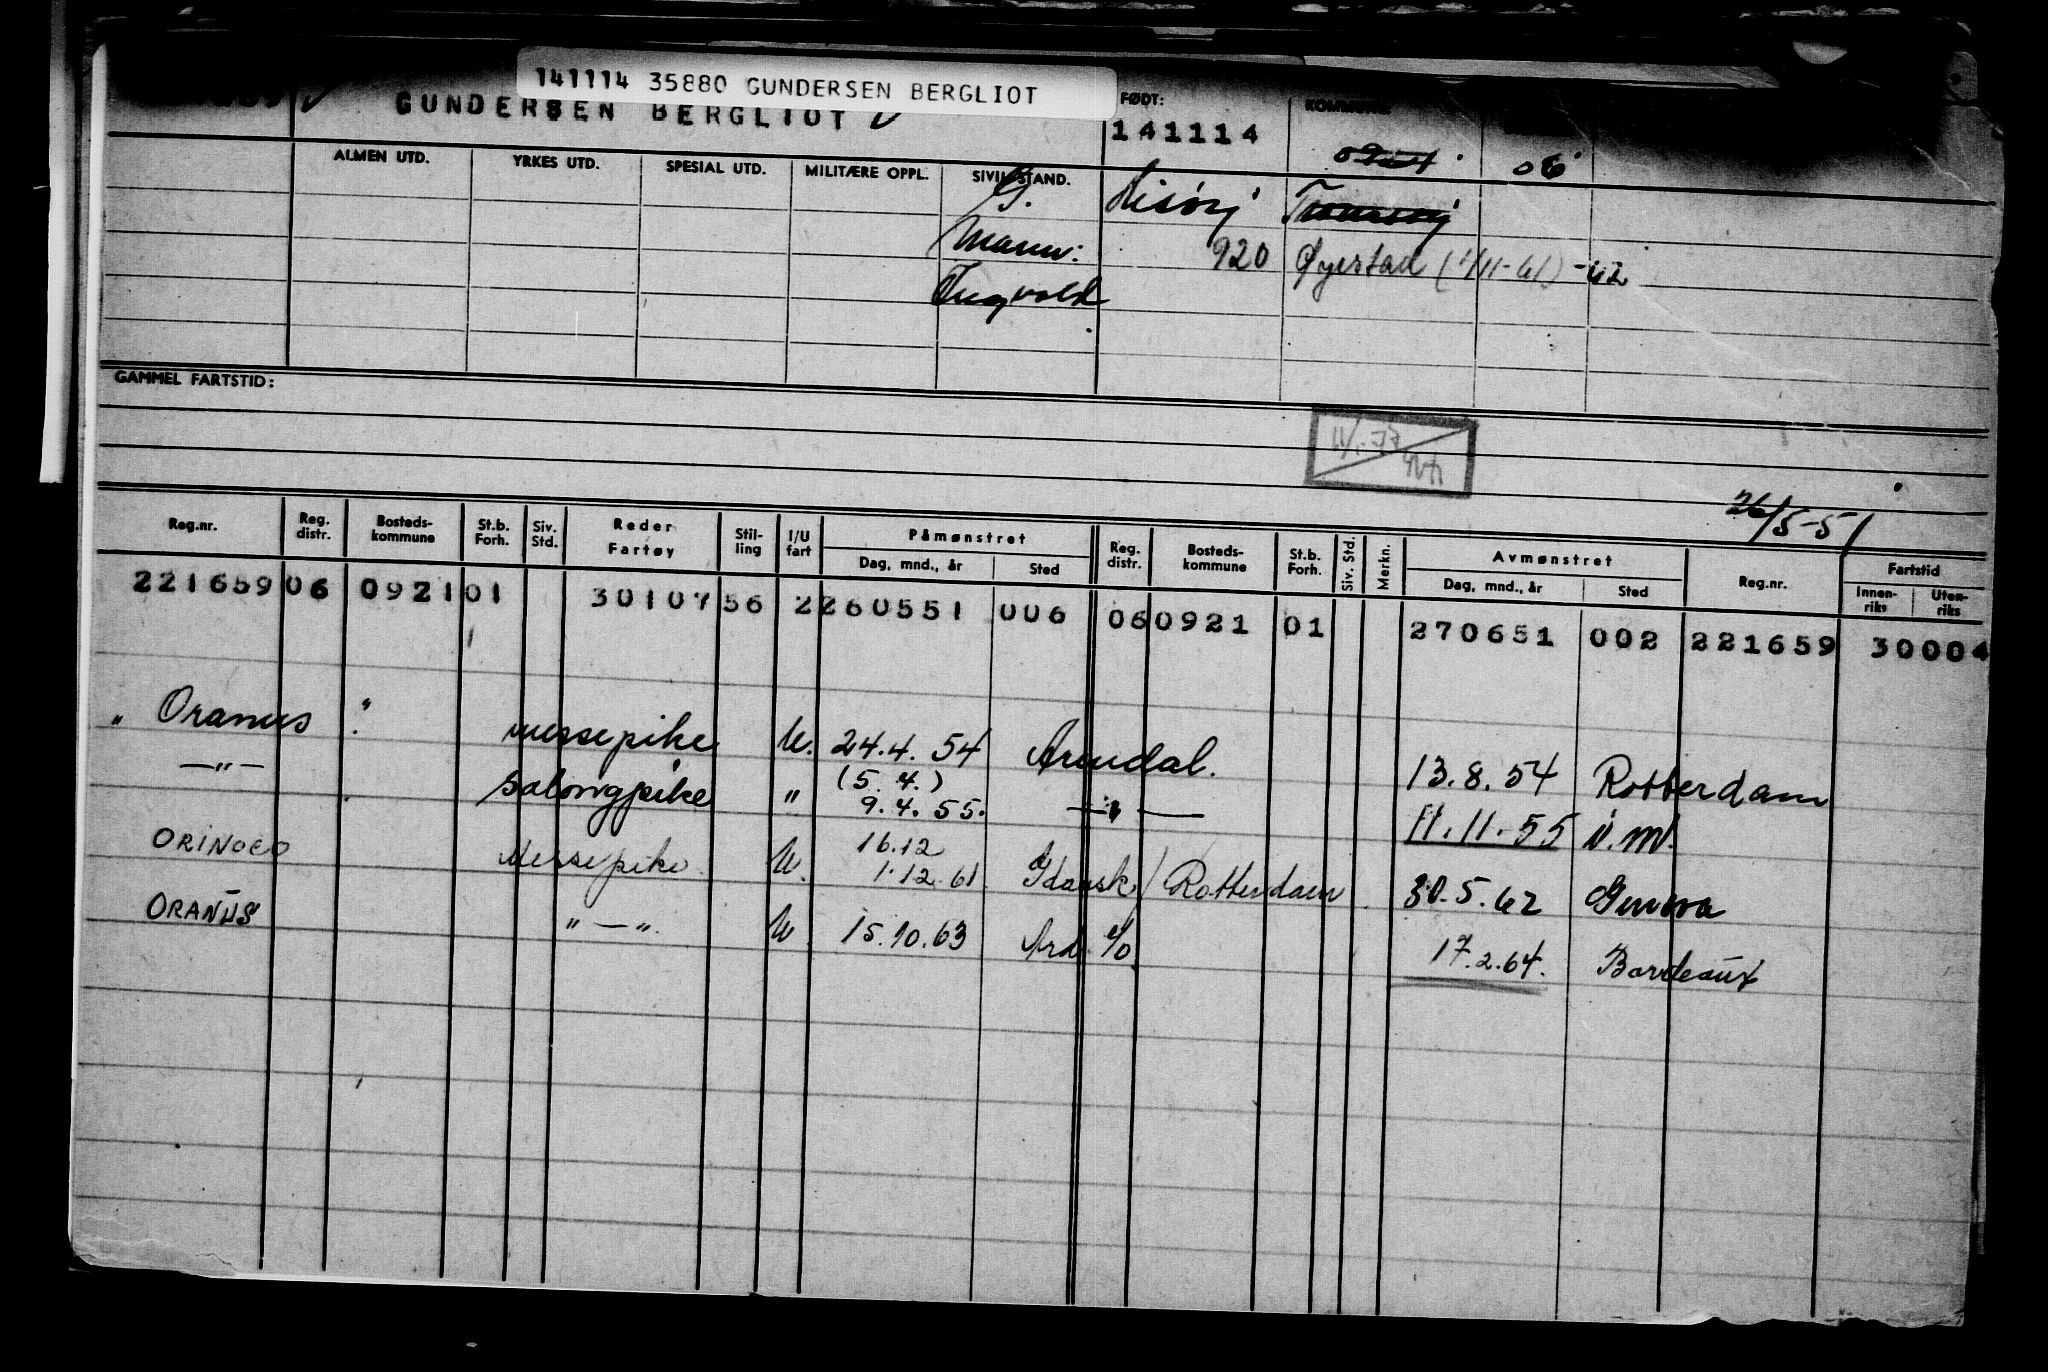 141114 35880 GUNDERSEN BERGLIOT
GUNDERSEN BERGLIOT
FØDT: KOMMUNE:
141114
ALMEN UTD. YRKES UTD. SPESIAL UTD. MILITÆRE OPPL. SIVILSTAND.
06
G. Risør Tromøy
Mann: 920 Øyestad (1/11-61) -62
Ingvald
GAMMEL FARTSTID:
11/1-77
26/5-51
Reg.nr. Reg. distr. Bosteds-kommune St.b. Forh. Siv. Std. Reder Fartøy Stil-ling I/U fart Påmønstret Dag, mnd., år Sted Reg. distr. Bosteds-kommune St.b. Forh. Siv. Std. Merkn. Avmønstret Dag, mnd., år Sted Reg.nr. Fartstid Innen-riks Uten-riks
221659 06 0921 01 30107 56 2 260551 006 06 0921 01 270651 002 221659 30004
" Oranus " messepike U. 24.4.54 Arendal. 13.8.54 Rotterdam
—"— salongpike " (5.4.) 9.4.55. —"— 11.11.55 ü.m.
ORINOCO Messepike U. 16.12 1.12.61 Gdansk / Rotterdam 30.5.62 Genova
ORANUS "—". U 15.10.63 Ard. %. 17.2.64. Bordeaux